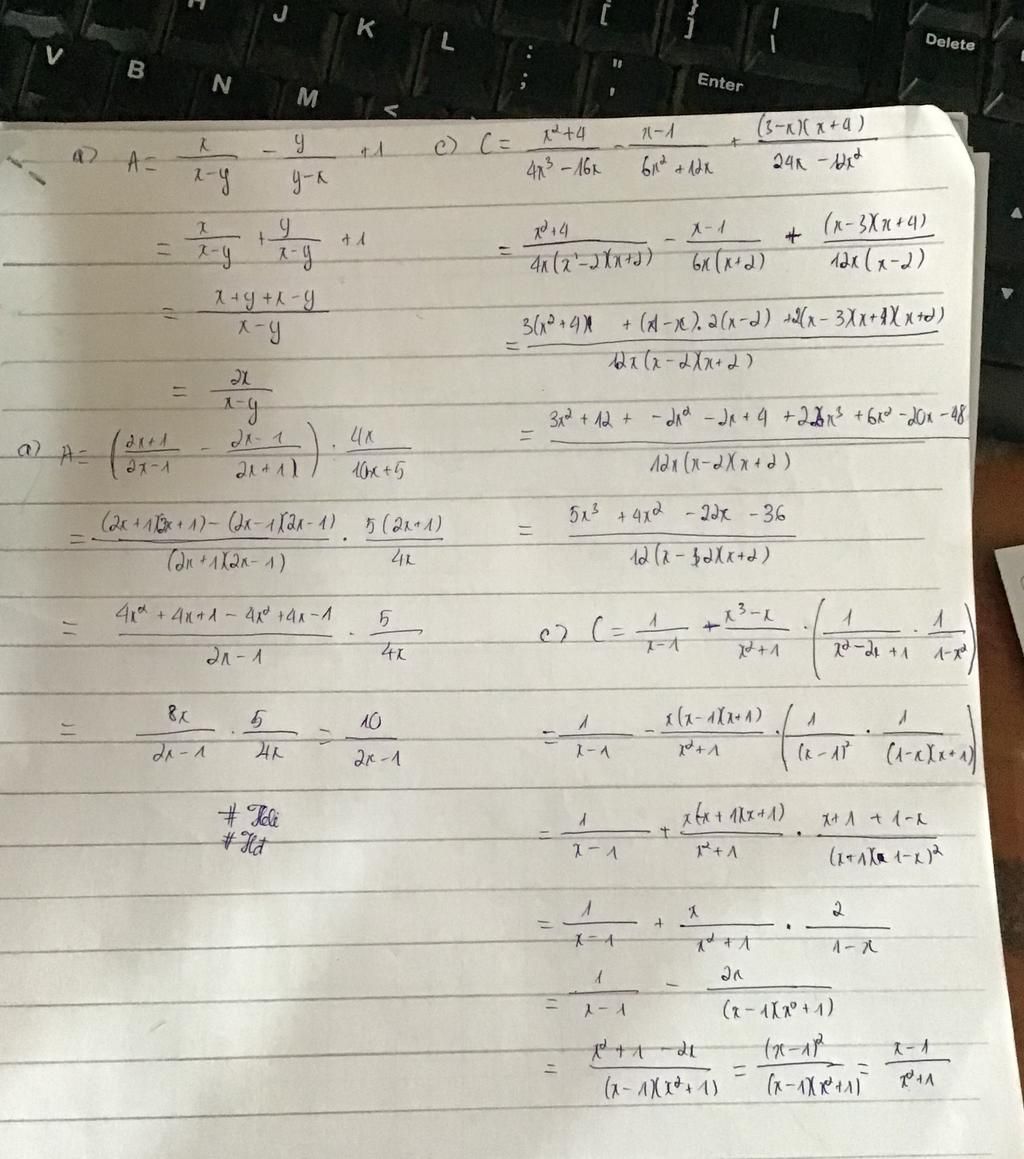 H J K L [ { ] } | \ Delete
V B N M < : ; " ' Enter
a) A = x/(x-y) - y/(y-x) + 1
= x/(x-y) + y/(x-y) + 1
= (x+y+x-y)/(x-y)
= 2x/(x-y)
a) A = ((2x+1)/(2x-1) - (2x-1)/(2x+1)) · 4x/(10x+5)
= ((2x+1)(2x+1) - (2x-1)(2x-1))/((2x+1)(2x-1)) · 5(2x+1)/4x
= (4x²+4x+1-4x²+4x-1)/(2x-1) · 5/4x
= 8x/(2x-1) · 5/4x = 10/(2x-1)
c) C = (x²+4)/(4x³-16x) - (x-1)/(6x²+12x) + (3-x)(x+4)/(24x-12x²)
= (x²+4)/(4x(x-2)(x+2)) - (x-1)/(6x(x+2)) + (x-3)(x+4)/(12x(x-2))
= (3(x²+4) + (1-x).2(x-2) + 2(x-3)(x+4)(x+2))/(12x(x-2)(x+2))
= (3x²+12 + -2x² -2x+4 + 2x³ +6x² -20x -48)/(12x(x-2)(x+2))
= (5x³ +4x² -22x -36)/(12(x-2)(x+2))
c) C = 1/(x-1) + (x³-x)/(x²+1) · (1/(x²-2x+1) · 1/(1-x²))
= 1/(x-1) - x(x-1)(x+1)/(x²+1) · (1/(x-1)² · 1/((1-x)(x+1)))
= 1/(x-1) + x(x+1)(x+1)/(x²+1) · (x+1+1-x)/((x+1)(1-x)²)
= 1/(x-1) + x/(x²+1) · 2/(1-x)
= 1/(x-1) - 2x/((x-1)(x²+1))
= (x²+1-2x)/((x-1)(x²+1)) = (x-1)²/((x-1)(x²+1)) = (x-1)/(x²+1)